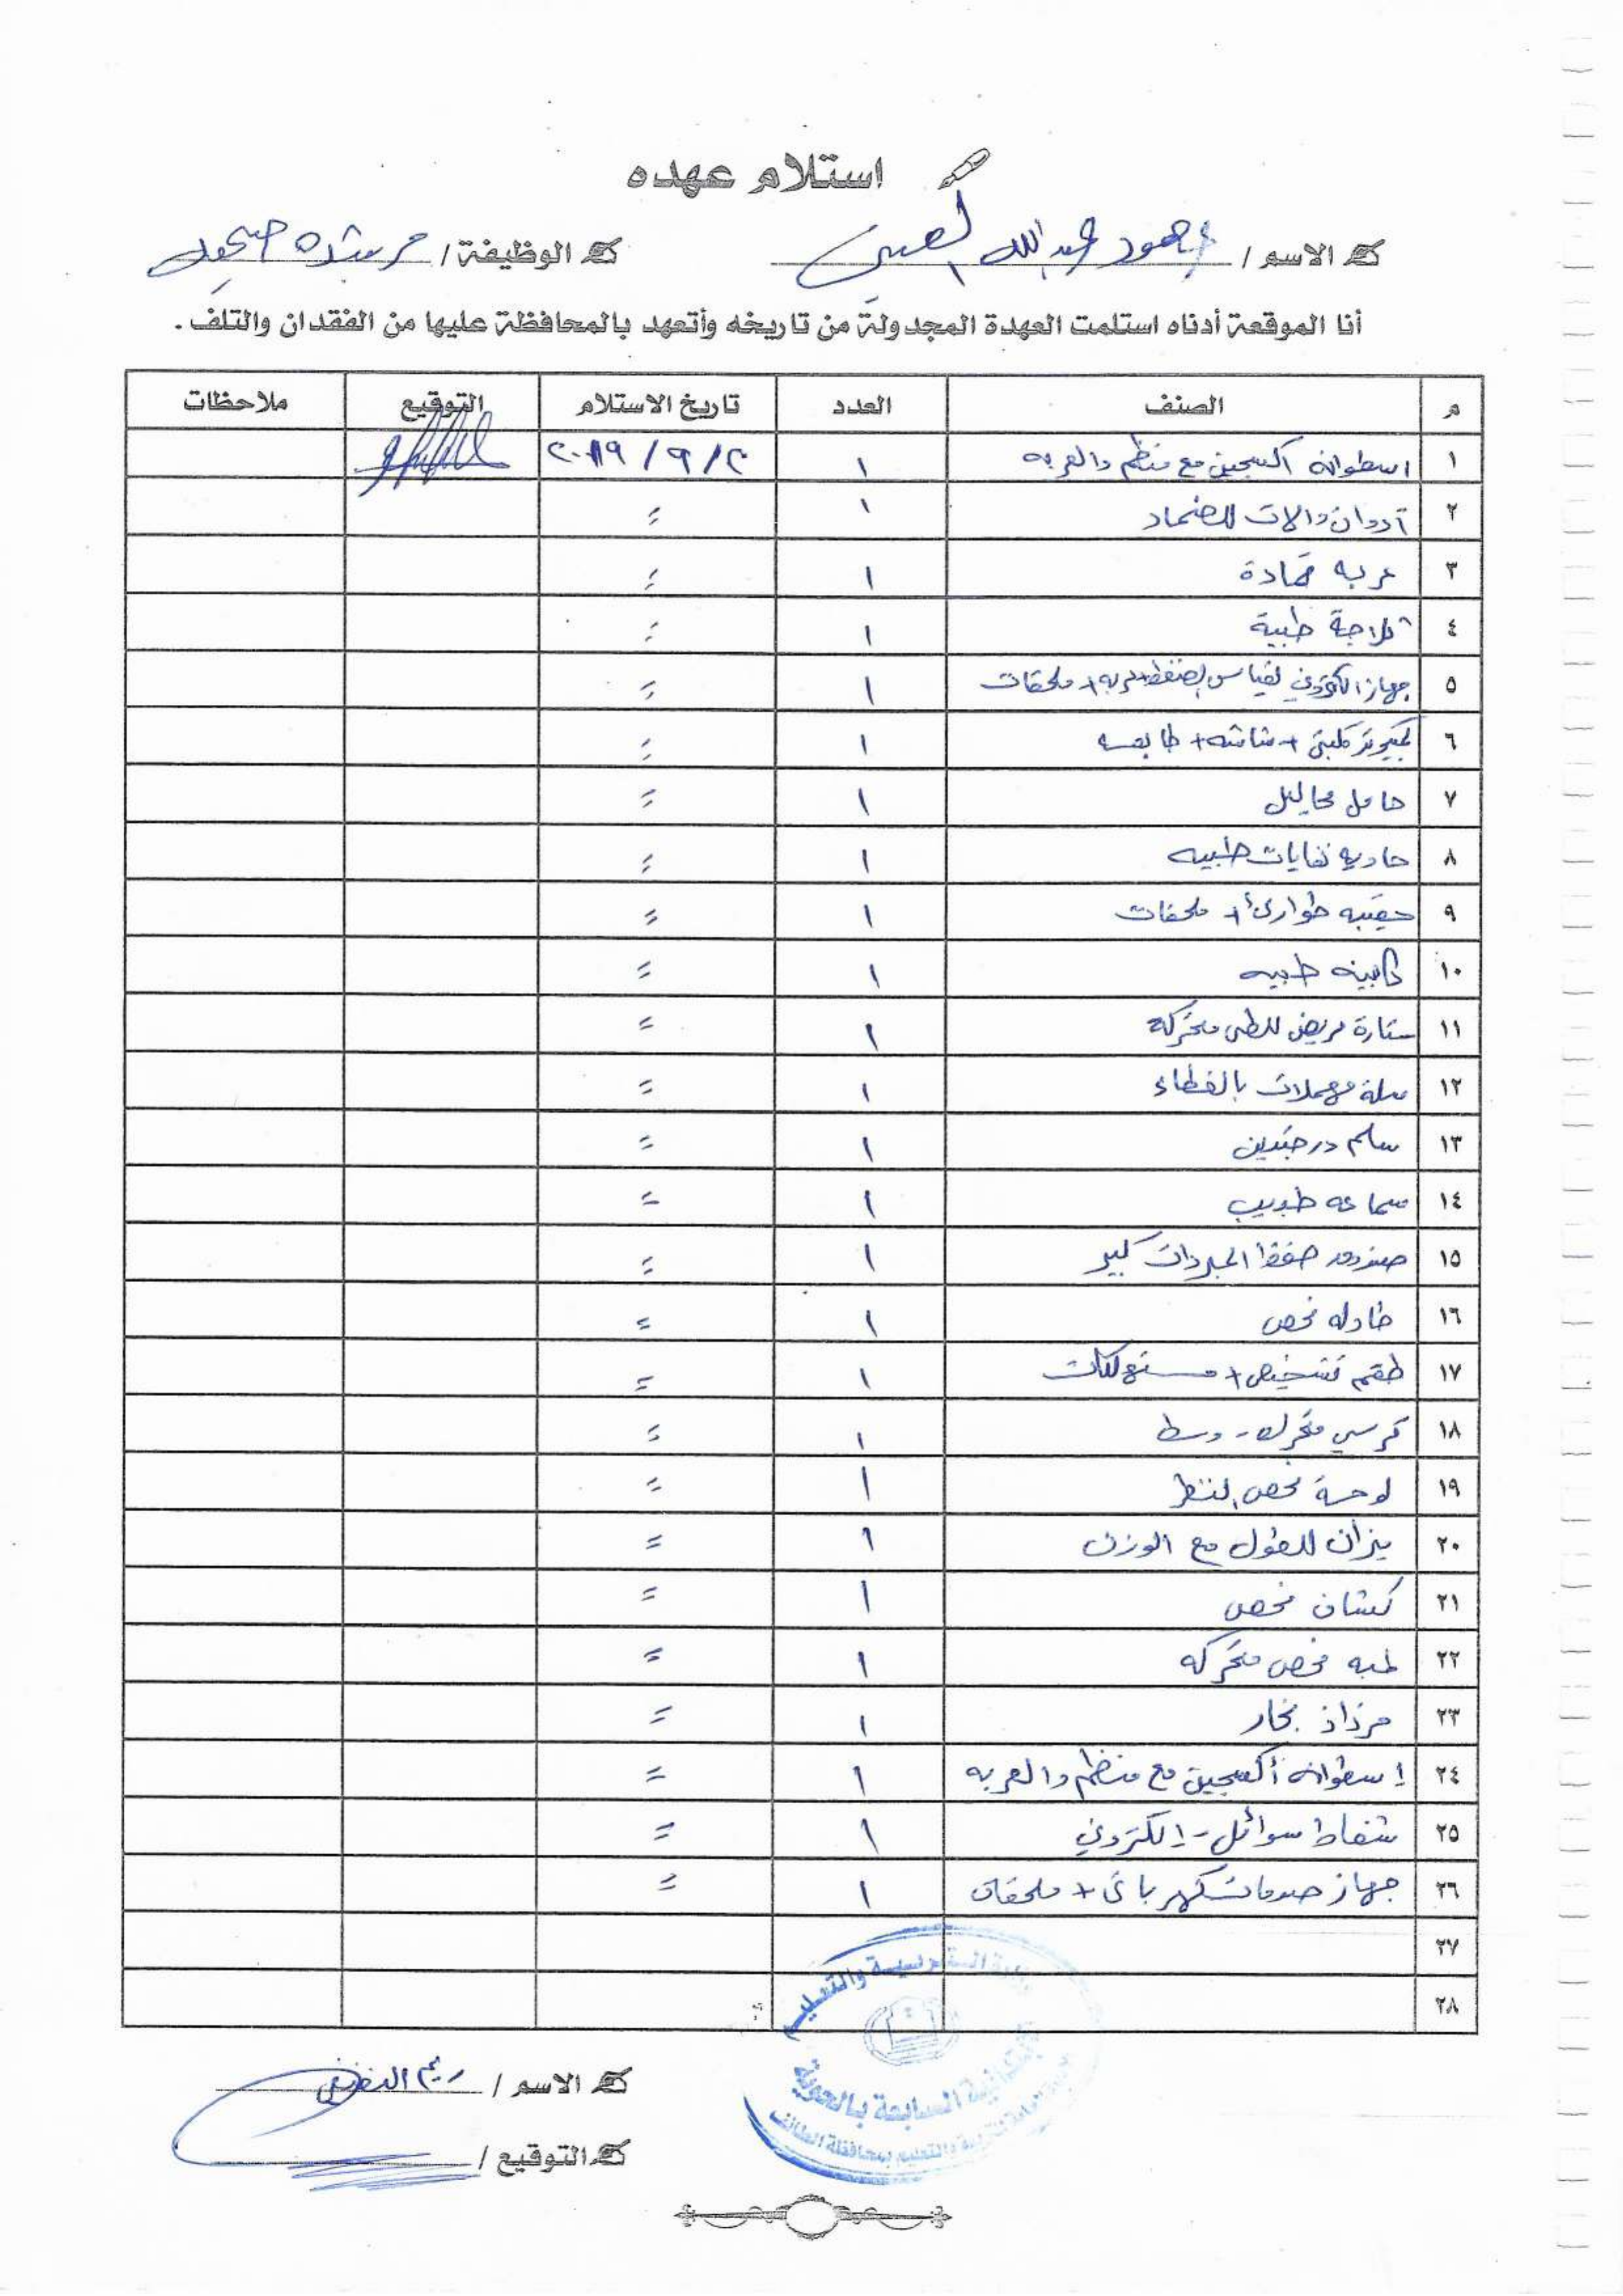 استلام عهده
الاسم / عبدالله
الوظيفة / مرشدة صحية
أنا الموقعة أدناه استلمت العهدة المجدولة من تاريخه وأتعهد بالمحافظة عليها من الفقدان والتلف .
م الصنف العدد تاريخ الاستلام التوقيع ملاحظات
١ اسطوانة اكسجين مع منظم والعربه ١ ٢/٩/٢٠١٩
٢ أدوات والات للضماد ١ =
٣ عربه ضمادة ١ =
٤ ثلاجة طبية ١ =
٥ جهاز الكتروني لقياس الضغط + عربه + ملحقات ١ =
٦ كمبيوتر مكتبي + شاشه + طابعه ١ =
٧ حامل محاليل ١ =
٨ حاويه نفايات طبيه ١ =
٩ حقيبه طوارئ + ملحقات ١ =
١٠ كابينه طبيه ١ =
١١ ستارة مريض للطي متحركة ١ =
١٢ سلة مهملات بالغطاء ١ =
١٣ سلم درجتين ١ =
١٤ سماعه طبيب ١ =
١٥ صندوق حفظ المبردات كبير ١ =
١٦ طاوله فحص ١ =
١٧ طقم تشخيص + مستهلكات ١ =
١٨ كرسي متحرك - وسط ١ =
١٩ لوحة فحص النظر ١ =
٢٠ ميزان للطول مع الوزن ١ =
٢١ كشاف فحص ١ =
٢٢ لمبه فحص متحركه ١ =
٢٣ مرذاذ بخار ١ =
٢٤ إسطوانه أكسجين مع منظم والعربه ١ =
٢٥ شفاط سوائل - إلكتروني ١ =
٢٦ جهاز صدمات كهربائي + ملحقات ١ =
٢٧
٢٨
وزارة التربية والتعليم
السابعة بالحوية
والتعليم بمحافظة الطائف
الاسم / ريم
التوقيع /